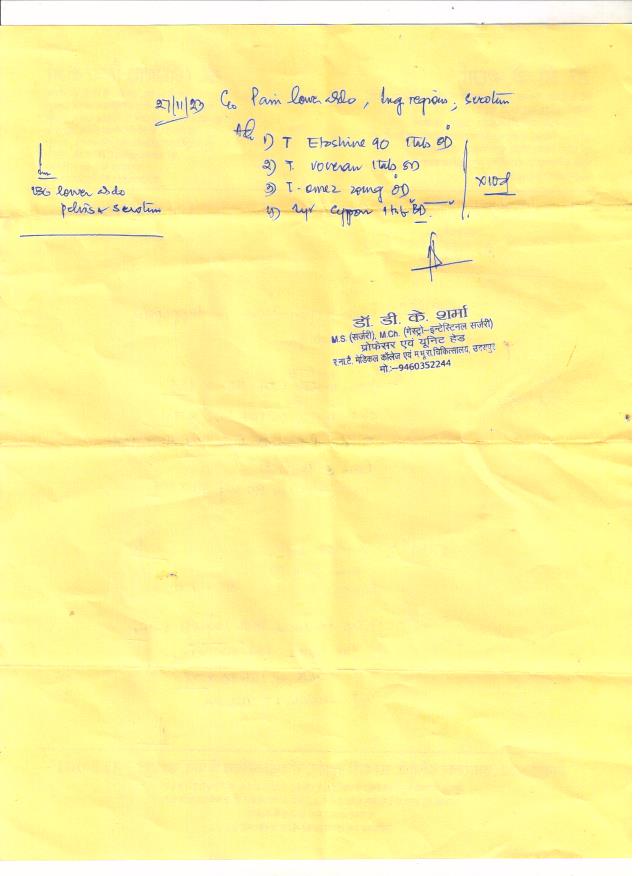 27/11/23 C/o Pain lower abdo, Ing region, scrotum
Adv
1) T Etoshine 90 1tab OD
2) T. voveran 1tab
3) T- omez 20mg OD
4) Syr 1tab BD
x10d
USG lower abdo
pelvis & scrotum
डॉ. डी. के. शर्मा
M.S. (सर्जरी), M.Ch. (गेस्ट्रो-इन्टेस्टिनल सर्जरी)
प्रोफेसर एवं यूनिट हेड
र.ना.टै. मेडिकल कॉलेज एवं म.भू.रा.चिकित्सालय, उदयपुर
मो:-9460352244